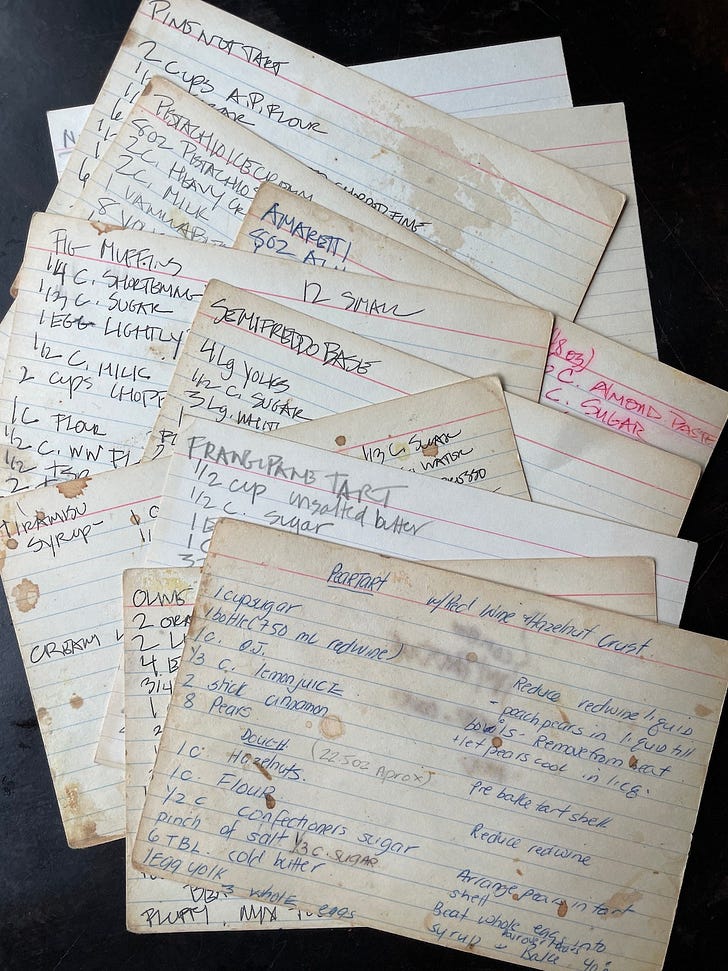 PINE NUT TART
2 CUPS A.P. FLOUR
CHOPPED FINE
PISTACHIO ICE CREAM
8OZ PISTACHIO
2C. HEAVY CR
2C. MILK
VANILLA B
8 YO
AMARETTI
8OZ AL
(8oz)
C. ALMOND PASTE
C. SUGAR
FIG MUFFINS
12 SMALL
1/4 C. SHORTENING
1/3 C. SUGAR
1 EGG LIGHTLY
1/2 C. MILK
2 CUPS CHOPP
1 C FLOUR
1/2 C. WW FL
1/2 TSP
SEMIFREDDO BASE
4 Lg YOLKS
1/2 C. SUGAR
3 Lg. WHIT
1/3 C. SUGAR
WATER
FRANGIPANE TART
1/2 cup unsalted butter
1/2 C. sugar
TIRAMISU
SYRUP-
CREAM
OLIVE
2 ORA
2 L
4 E
3/4
FLUFFY, MIX
PEARTART w/Red Wine + Hazelnut Crust.
1 cupsugar
1 bottle (750 mL redwine)
1 C. O.J.
1/3 C. lemonjuice
2 stick cinnamon
8 Pears
Dough (22.5oz Aprox)
1 C Hazelnuts.
1 C. FLOUR
1/2 C Confectioners sugar
pinch of salt 1/3 C. SUGAR
6 TBL. cold butter
1 Egg yolk
3 whole eggs
Reduce redwine liquid
- poach pears in liquid till
boils - Remove from heat
+ let pears cool in liq.
Pre bake tart shell
Reduce redwine
Arrange pears in tart
shell
Beat whole eggs into
syrup
Bake